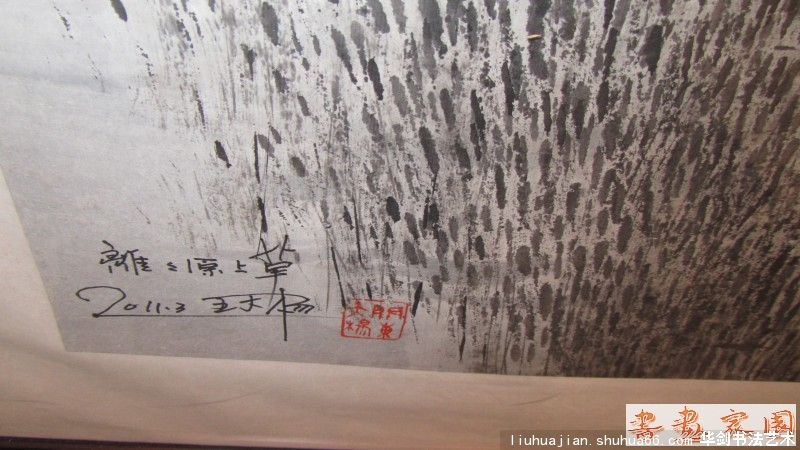 離〻原上草
2011.3 王
書畫家園
liuhuajian.shuhua66.com 华剑书法艺术